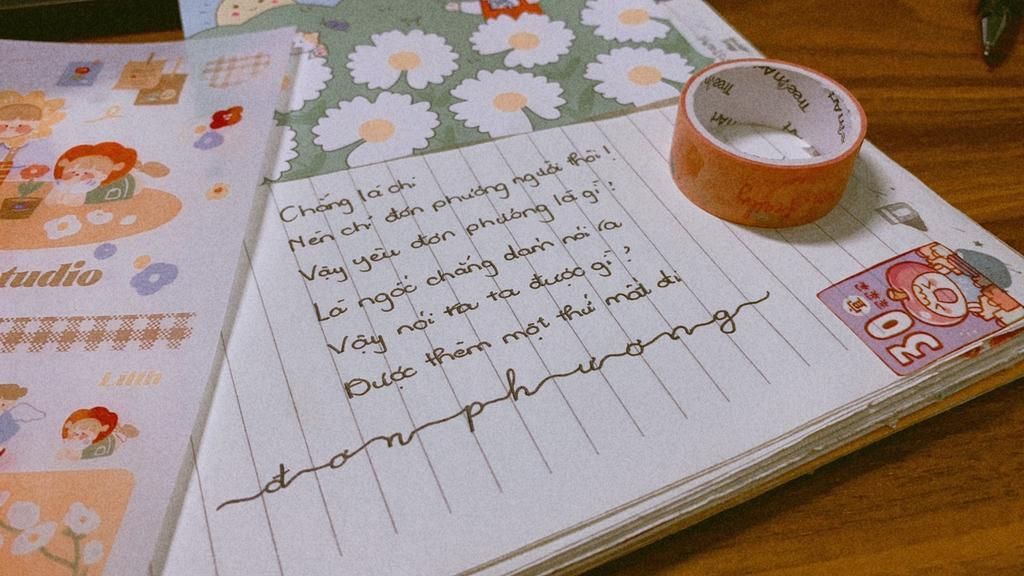 Chẳng là chi
Nên chỉ đơn phương người thôi!
Vậy yêu đơn phương là gì?
Là ngốc chẳng dám nói ra
Vậy nói ra ta được gì?
Được thêm một thứ mất đi
đơn phương
tudio
30
TreeinArt